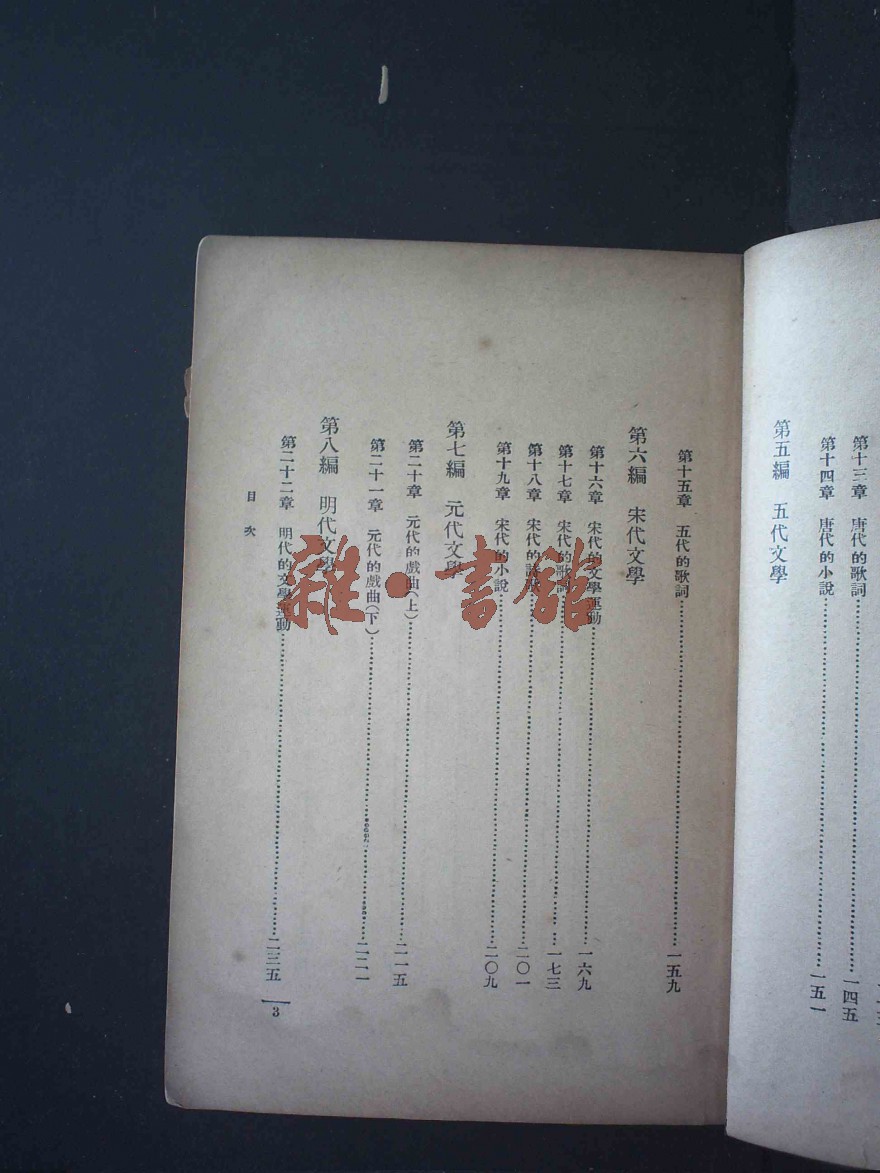 第十三章　唐代的歌詞
一四五
第十四章　唐代的小說
一五一
第五編　五代文學
第十五章　五代的歌詞
一五九
第六編　宋代文學
第十六章　宋代的文學運動
一六九
第十七章　宋代的歌詞
一七三
第十八章　宋代的詩歌
二〇一
第十九章　宋代的小說
二〇九
第七編　元代文學
第二十章　元代的戲曲(上)
二一五
第二十一章　元代的戲曲(下)
二二一
第八編　明代文學
第二十二章　明代的文學運動
二三五
目次
3
雜·書館